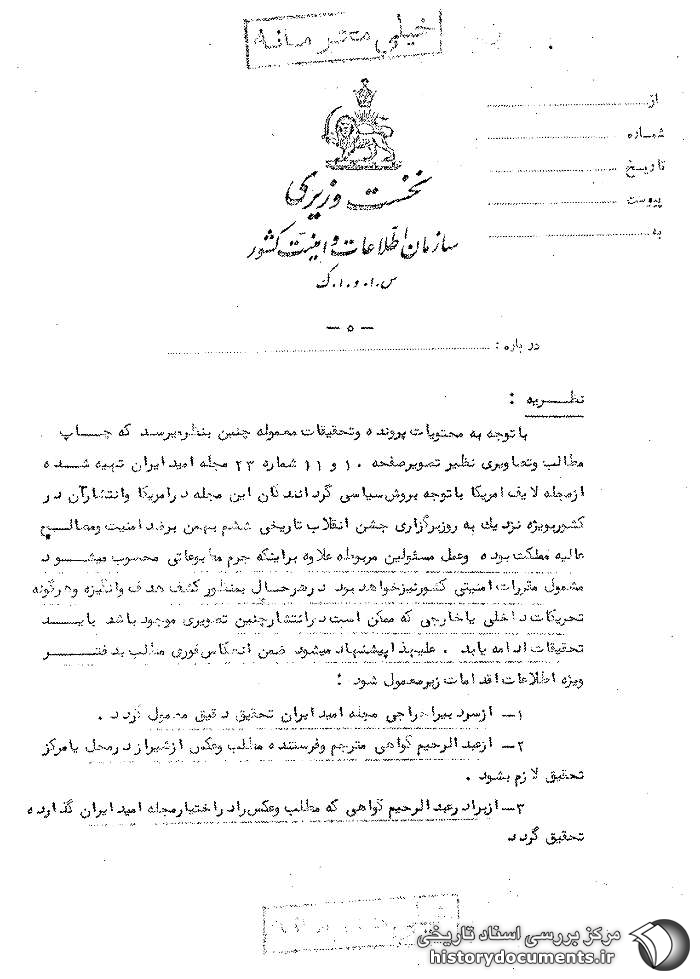 خیلی محرمانه
از
شماره
تاریخ
پیوست
به
نخست وزیری
سازمان اطلاعات و امنیت کشور
س.ا.و.ا.ک
— ۵ —
درباره :
نظریه :
با توجه به محتویات پرونده و تحقیقات معموله چنین بنظر میرسد که چاپ
مطالب و تصاویری نظیر تصویر صفحه ۱۰ و ۱۱ شماره ۲۳ مجله امید ایران تهیه شده
از مجله لایف امریکا با توجه بروش سیاسی گردانندگان این مجله در امریکا و انتشار آن در
کشور بویژه نزدیک به روز برگزاری جشن انقلاب تاریخی ششم بهمن بر ضد امنیت و مصالح
عالیه مملکت بوده و عمل مسئولین مربوطه علاوه بر اینکه جرم مطبوعاتی محسوب میشود
مشمول مقررات امنیتی کشور نیز خواهد بود در هر حال بمنظور کشف هدف و انگیزه و هرگونه
تحریکات داخلی یا خارجی که ممکن است در انتشار چنین تصویری موجود باشد باید
تحقیقات ادامه یابد . علیهذا پیشنهاد میشود ضمن انعکاس فوری مطالب بدفتر
ویژه اطلاعات اقدامات زیر معمول شود :
۱— از سردبیر اخراجی مجله امید ایران تحقیق دقیق معمول گردد .
۲— از عبدالرحیم گواهی مترجم و فرستنده مطلب و عکس از شیراز در محل یا مرکز
تحقیق لازم بشود .
۳— از برادر عبدالرحیم گواهی که مطلب و عکس را در اختیار مجله امید ایران گذارده
تحقیق گردد
مرکز بررسی اسناد تاریخی
historydocuments.ir